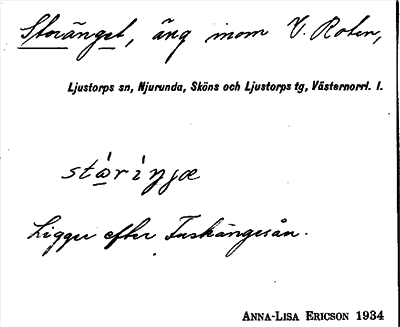 Storänget, äng inom V. Roten,
Ljustorps sn, Njurunda, Sköns och Ljustorps tg, Västernorrl. l.
Ligger efter Fuskängesån.
ANNA-LISA ERICSON 1934